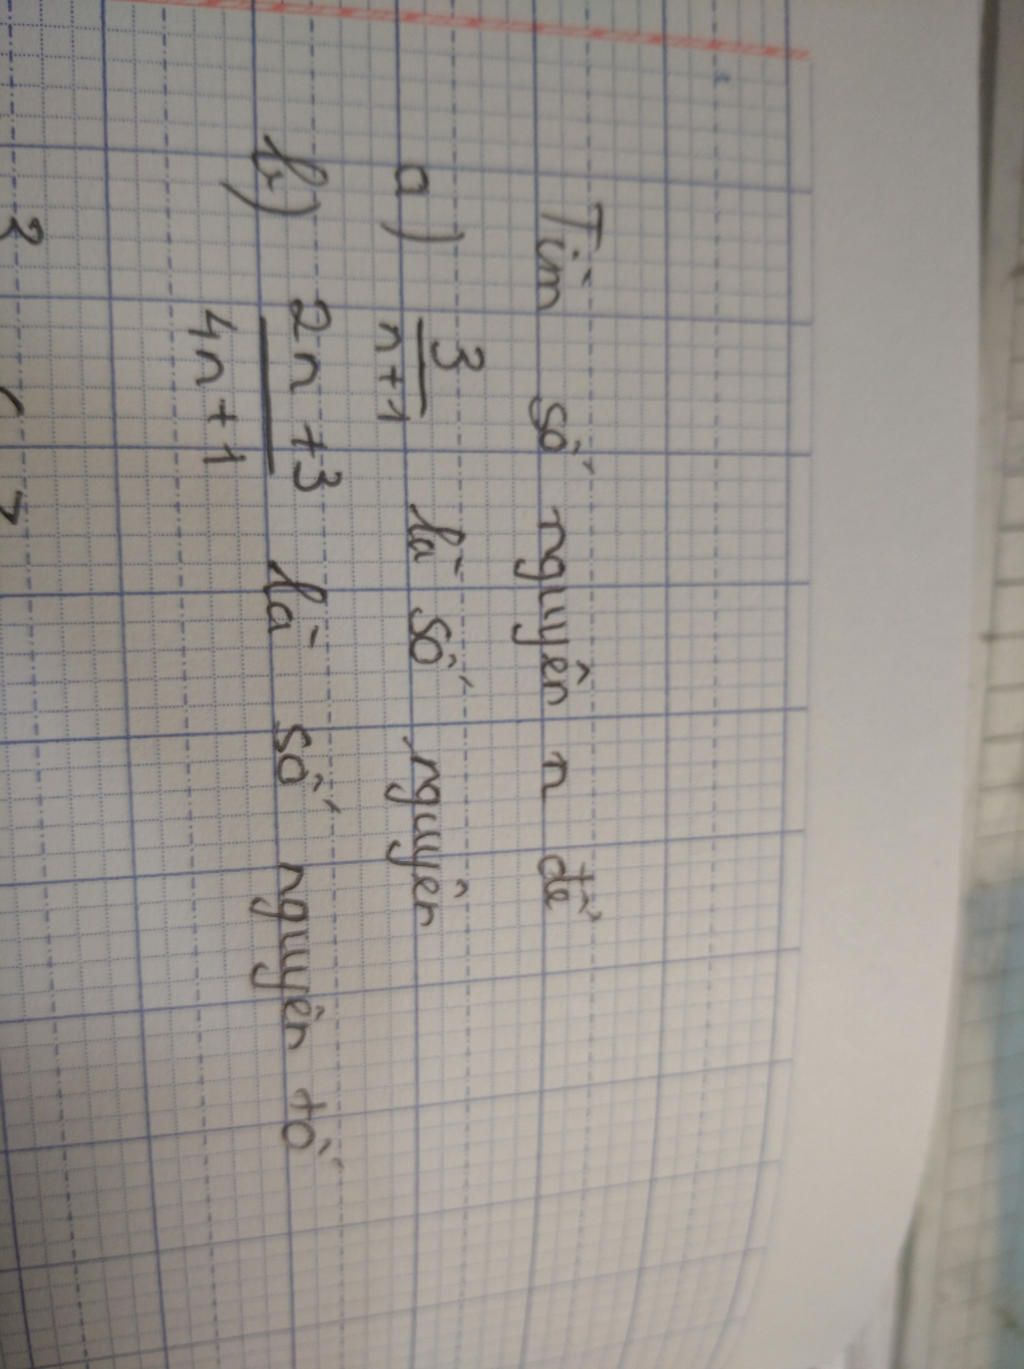 Tìm số nguyên n để
a) 3/n+1 là số nguyên
b) 2n+3/4n+1 là số nguyên tố